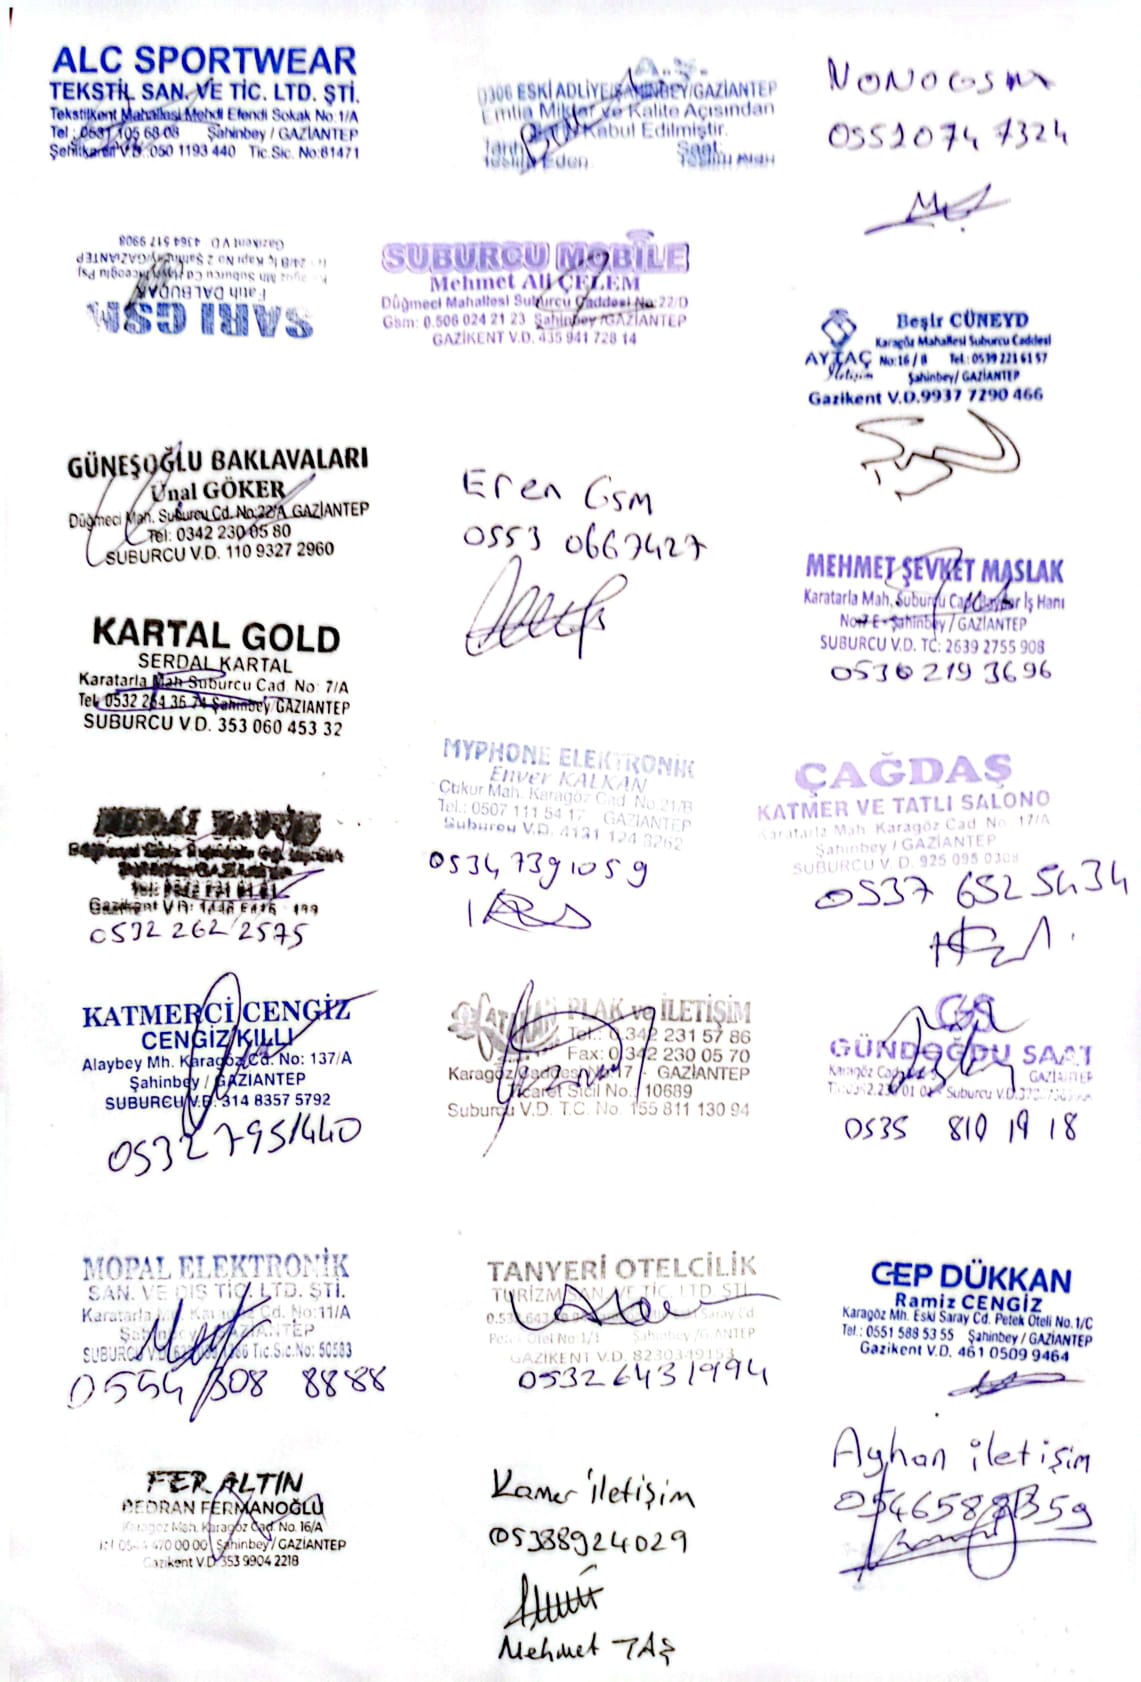 ALC SPORTWEAR
TEKSTİL SAN. VE TİC. LTD. ŞTİ.
Tekstilkent Mahallesi Mehdi Efendi Sokak No:1/A
Tel : 0531 105 68 08 Şahinbey / GAZİANTEP
V.D.:050 1193 440 Tic.Sic. No:81471
A.Ş.
0306 ESKİ ADLİYE/ŞAHİNBEY/GAZİANTEP
Emtia Miktar ve Kalite Açısından
Kabul Edilmiştir.
Tarih Saat:
Teslim Eden Teslim Alan
NONOGSM
0551074 7324
SARI GSM
Fatih DALBUDAK
24/B İç Kapı No 2 Şahinbey/GAZİANTEP
Gazikent V.D. 4364 517 9908
SUBURCU MOBİLE
Mehmet Ali ÇELEM
Düğmeci Mahallesi Suburcu Caddesi No:22/D
Gsm: 0.506 024 21 23 Şahinbey /GAZİANTEP
GAZİKENT V.D. 435 941 728 14
Beşir CÜNEYD
Karagöz Mahallesi Suburcu Caddesi
AYTAÇ No:16 / B Tel.: 0539 221 61 57
İletişim Şahinbey/ GAZİANTEP
Gazikent V.D.9937 7290 466
GÜNEŞOĞLU BAKLAVALARI
Ünal GÖKER
Düğmeci Mah. Suburcu Cd. No:22/A GAZİANTEP
Tel: 0342 230 05 80
SUBURCU V.D. 110 9327 2960
Eren Gsm
0553 0667427
MEHMET ŞEVKET MASLAK
Karatarla Mah. Suburcu Cad. İş Hanı
No:7 E - Şahinbey / GAZİANTEP
SUBURCU V.D. TC: 2639 2755 908
0530 219 3696
KARTAL GOLD
SERDAL KARTAL
Karatarla Mah Suburcu Cad. No: 7/A
Tel. 0532 264 36 74 Şahinbey/GAZİANTEP
SUBURCU V.D. 353 060 453 32
MYPHONE ELEKTRONİK
Enver KALKAN
Çukur Mah. Karagöz Cad. No.21/B
Tel.: 0507 111 54 17 GAZİANTEP
Suburcu V.D. 4131 124 3262
0534 7391059
ÇAĞDAŞ
KATMER VE TATLI SALONO
Karatarla Mah. Karagöz Cad. No: 17/A
Şahinbey / GAZİANTEP
SUBURCU V. D. 925 095 0308
0537 652 5434
Gazikent V.D.
0532 262 2575
KATMERCİ CENGİZ
CENGİZ KILLI
Alaybey Mh. Karagöz Cd. No: 137/A
Şahinbey / GAZİANTEP
SUBURCU V.D. 314 8357 5792
0532 7951440
PLAK ve İLETİŞİM
Tel.: 0.342 231 57 86
Fax: 0.342 230 05 70
Karagöz Caddesi No:17 - GAZİANTEP
Ticaret Sicil No.: 10689
Suburcu V.D. T.C. No. 155 811 130 94
GS
GÜNDOĞDU SAAT
Karagöz Cad. GAZİANTEP
Suburcu V.D.
0535 810 19 18
MOPAL ELEKTRONİK
SAN. VE DIŞ TİC. LTD. ŞTİ.
Karatarla Mh. Karagöz Cd. No:11/A
Şahinbey / GAZİANTEP
SUBURCU V.D. Tic.Sic.No: 50583
0554 308 8888
TANYERİ OTELCİLİK
TURİZM SAN. VE TİC. LTD. ŞTİ.
Saray Cd.
Petek Otel No:1/1 Şahinbey /GAZİANTEP
GAZİKENT V.D. 8230349153
0532 6431994
CEP DÜKKAN
Ramiz CENGİZ
Karagöz Mh. Eski Saray Cd. Petek Oteli No.1/C
Tel.: 0551 588 53 55 Şahinbey / GAZİANTEP
Gazikent V.D. 461 0509 9464
FER ALTIN
BEDRAN FERMANOĞLU
Karagöz Mah. Karagöz Cad. No. 16/A
470 00 00 Şahinbey/ GAZİANTEP
Gazikent V.D. 353 9904 2218
Kamer iletişim
05388924029
Mehmet TAŞ
Ayhan iletişim
05465881359